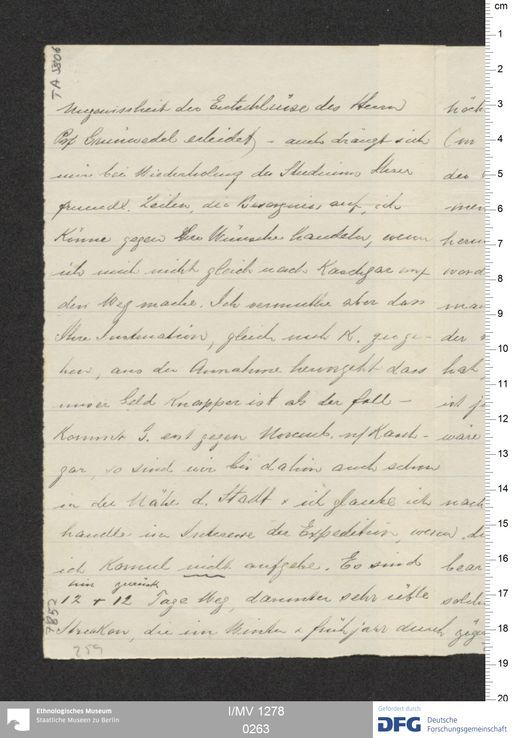 TA 5806
Ungewissheit der Entschlüsse des Herrn
Prof Grünwedel erleidet) – auch drängt sich
mir bei Wiederholung des Studiums Ihrer
freundl. Zeilen, die Besorgniss auf, ich
könne gegen Ihre Wünsche handeln, wenn
ich mich nicht gleich nach Kaschgar auf
den Weg mache. Ich vermuthe aber dass
Ihre Instruction, gleich nach K. zu ge-
hen, aus der Annahme hervorgeht dass
unser Geld knapper ist als der fall –
Kommt G. erst gegen Novemb. n/ Kasch-
gar, so sind wir bis dahin auch schon
in der Nähe d. Stadt & ich glaube ich
handle im Interesse der Expedition, wenn
ich Komul nicht aufgebe. Es sind
hin zurück
12 + 12 Tage Weg, darunter sehr üble
Strecken, die im Winter & frühjahr durch
7852
259
cm
1
2
3
4
5
6
7
8
9
10
11
12
13
14
15
16
17
18
19
20
Ethnologisches Museum
Staatliche Museen zu Berlin
I/MV 1278
0263
Gefördert durch
DFG Deutsche
Forschungsgemeinschaft